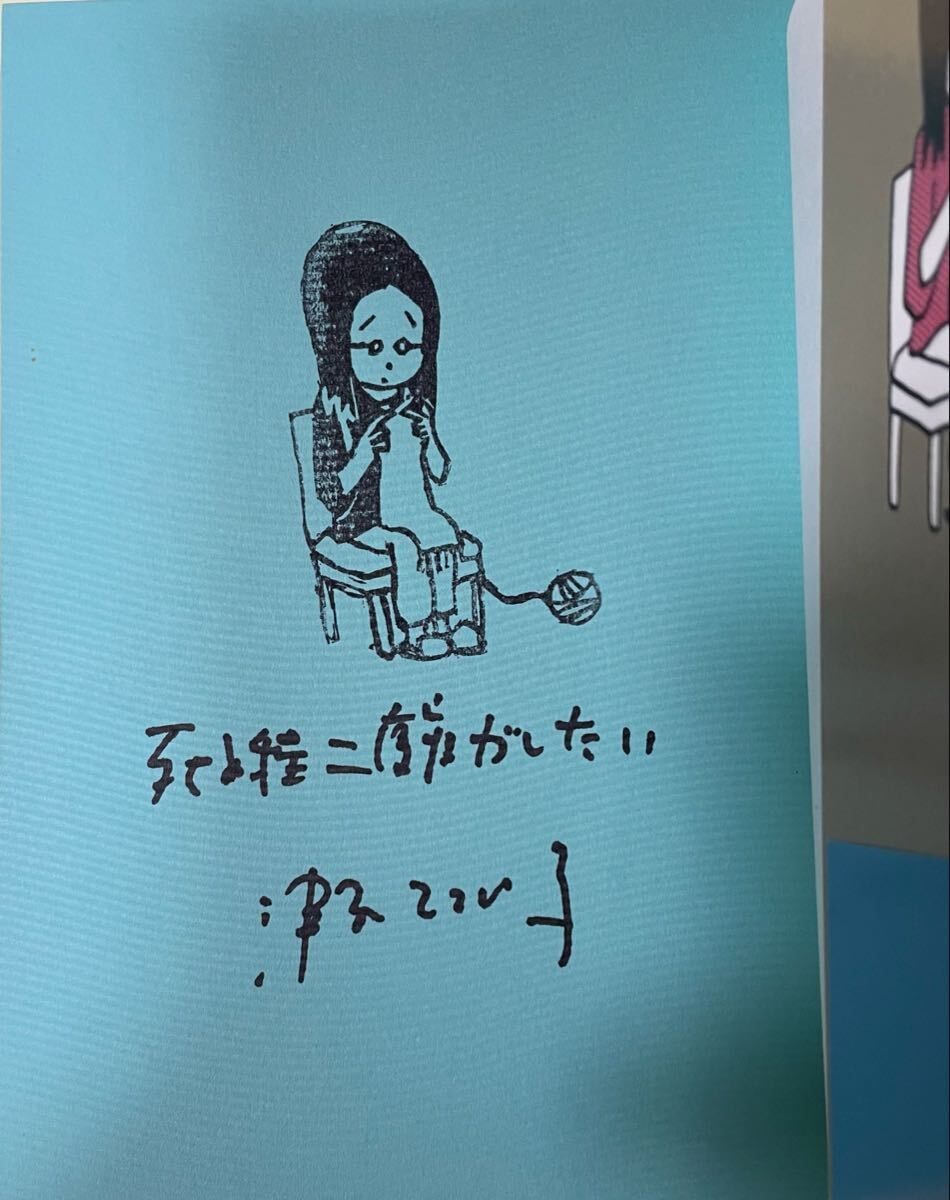 死ぬ程二度寝がしたい
津村記久子